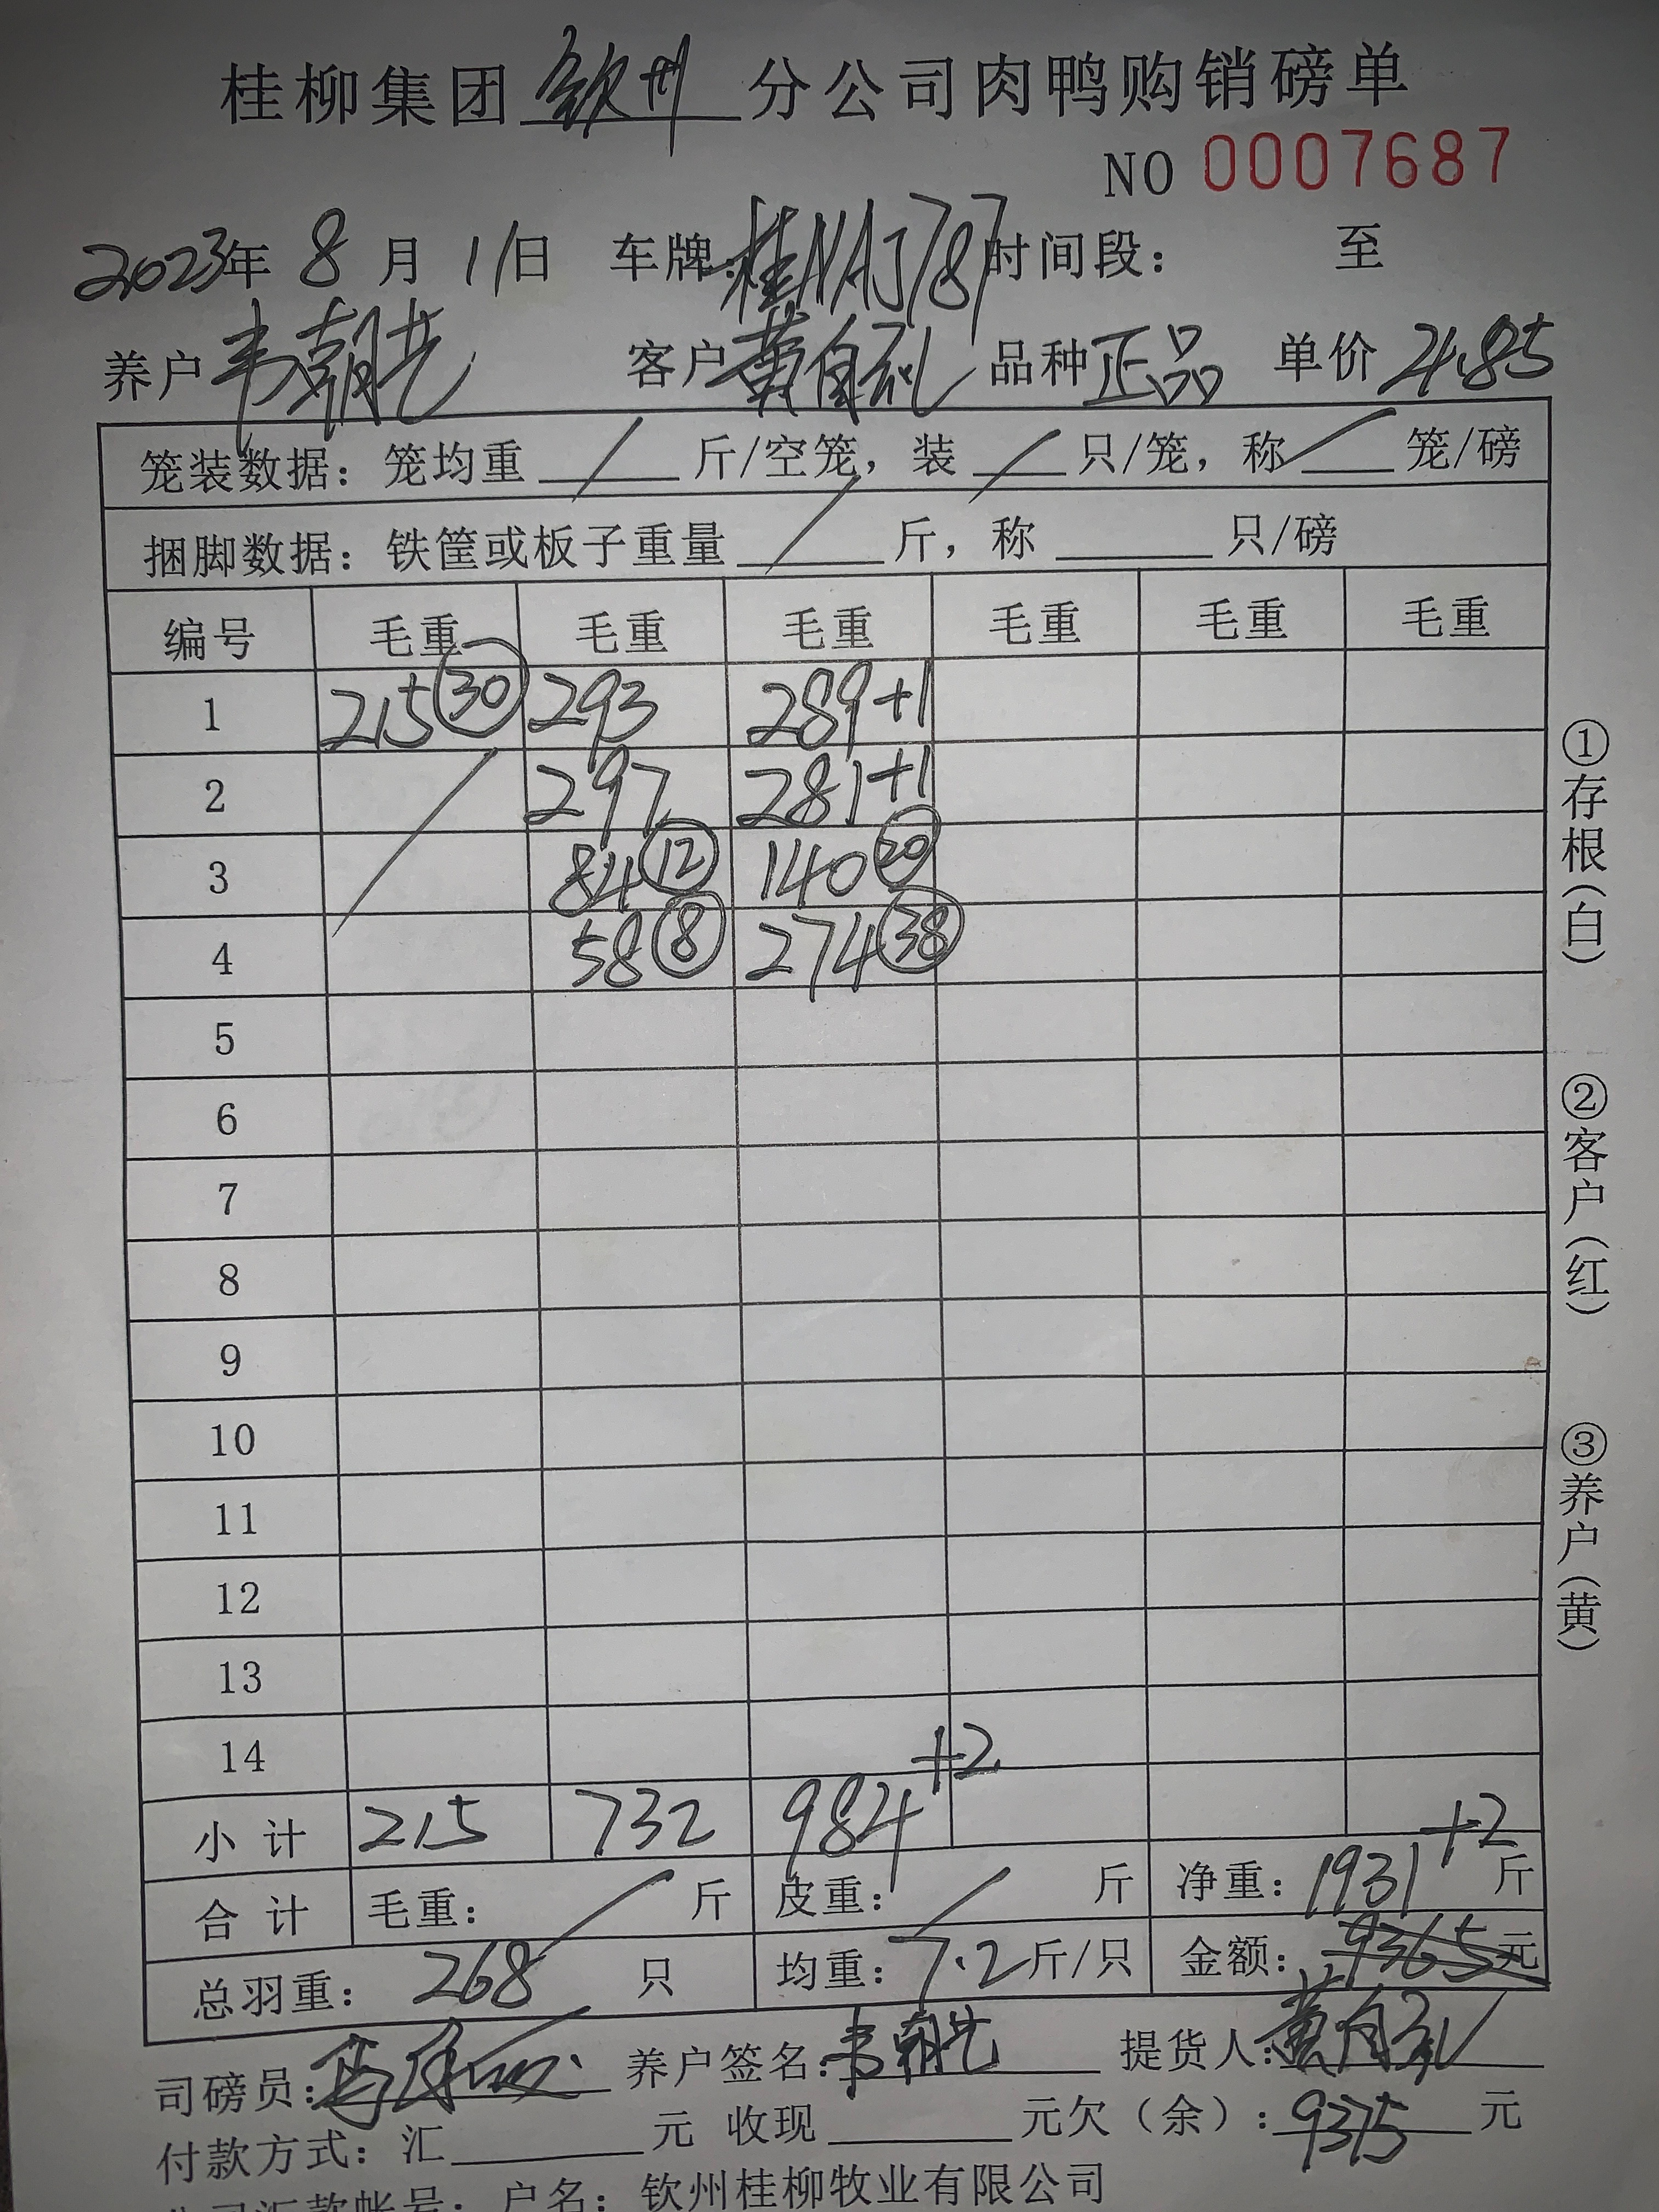 桂柳集团 钦州 分公司肉鸭购销磅单
NO 0007687
2023年 8 月 1日 车牌：桂NAJ787 时间段： 至
养户 韦朝先 客户 黄自礼 品种 正品 单价 4.85
笼装数据：笼均重 / 斤/空笼，装 / 只/笼，称 / 笼/磅
捆脚数据：铁筐或板子重量 / 斤，称 只/磅
编号 毛重 毛重 毛重 毛重 毛重 毛重
1 215 30 293 289+1
2 297 281+1
3 84 12 140 20
4 58 8 274 38
5
6
7
8
9
10
11
12
13
14
小计 215 732 984+2
合计 毛重： / 斤 皮重： / 斤 净重：1931+2 斤
总羽重： 268 只 均重：7.2斤/只 金额：9365元
司磅员： 养户签名：韦朝先 提货人：黄自礼
付款方式：汇 元 收现 元欠（余）：9375 元
户名：钦州桂柳牧业有限公司
①存根（白）
②客户（红）
③养户（黄）